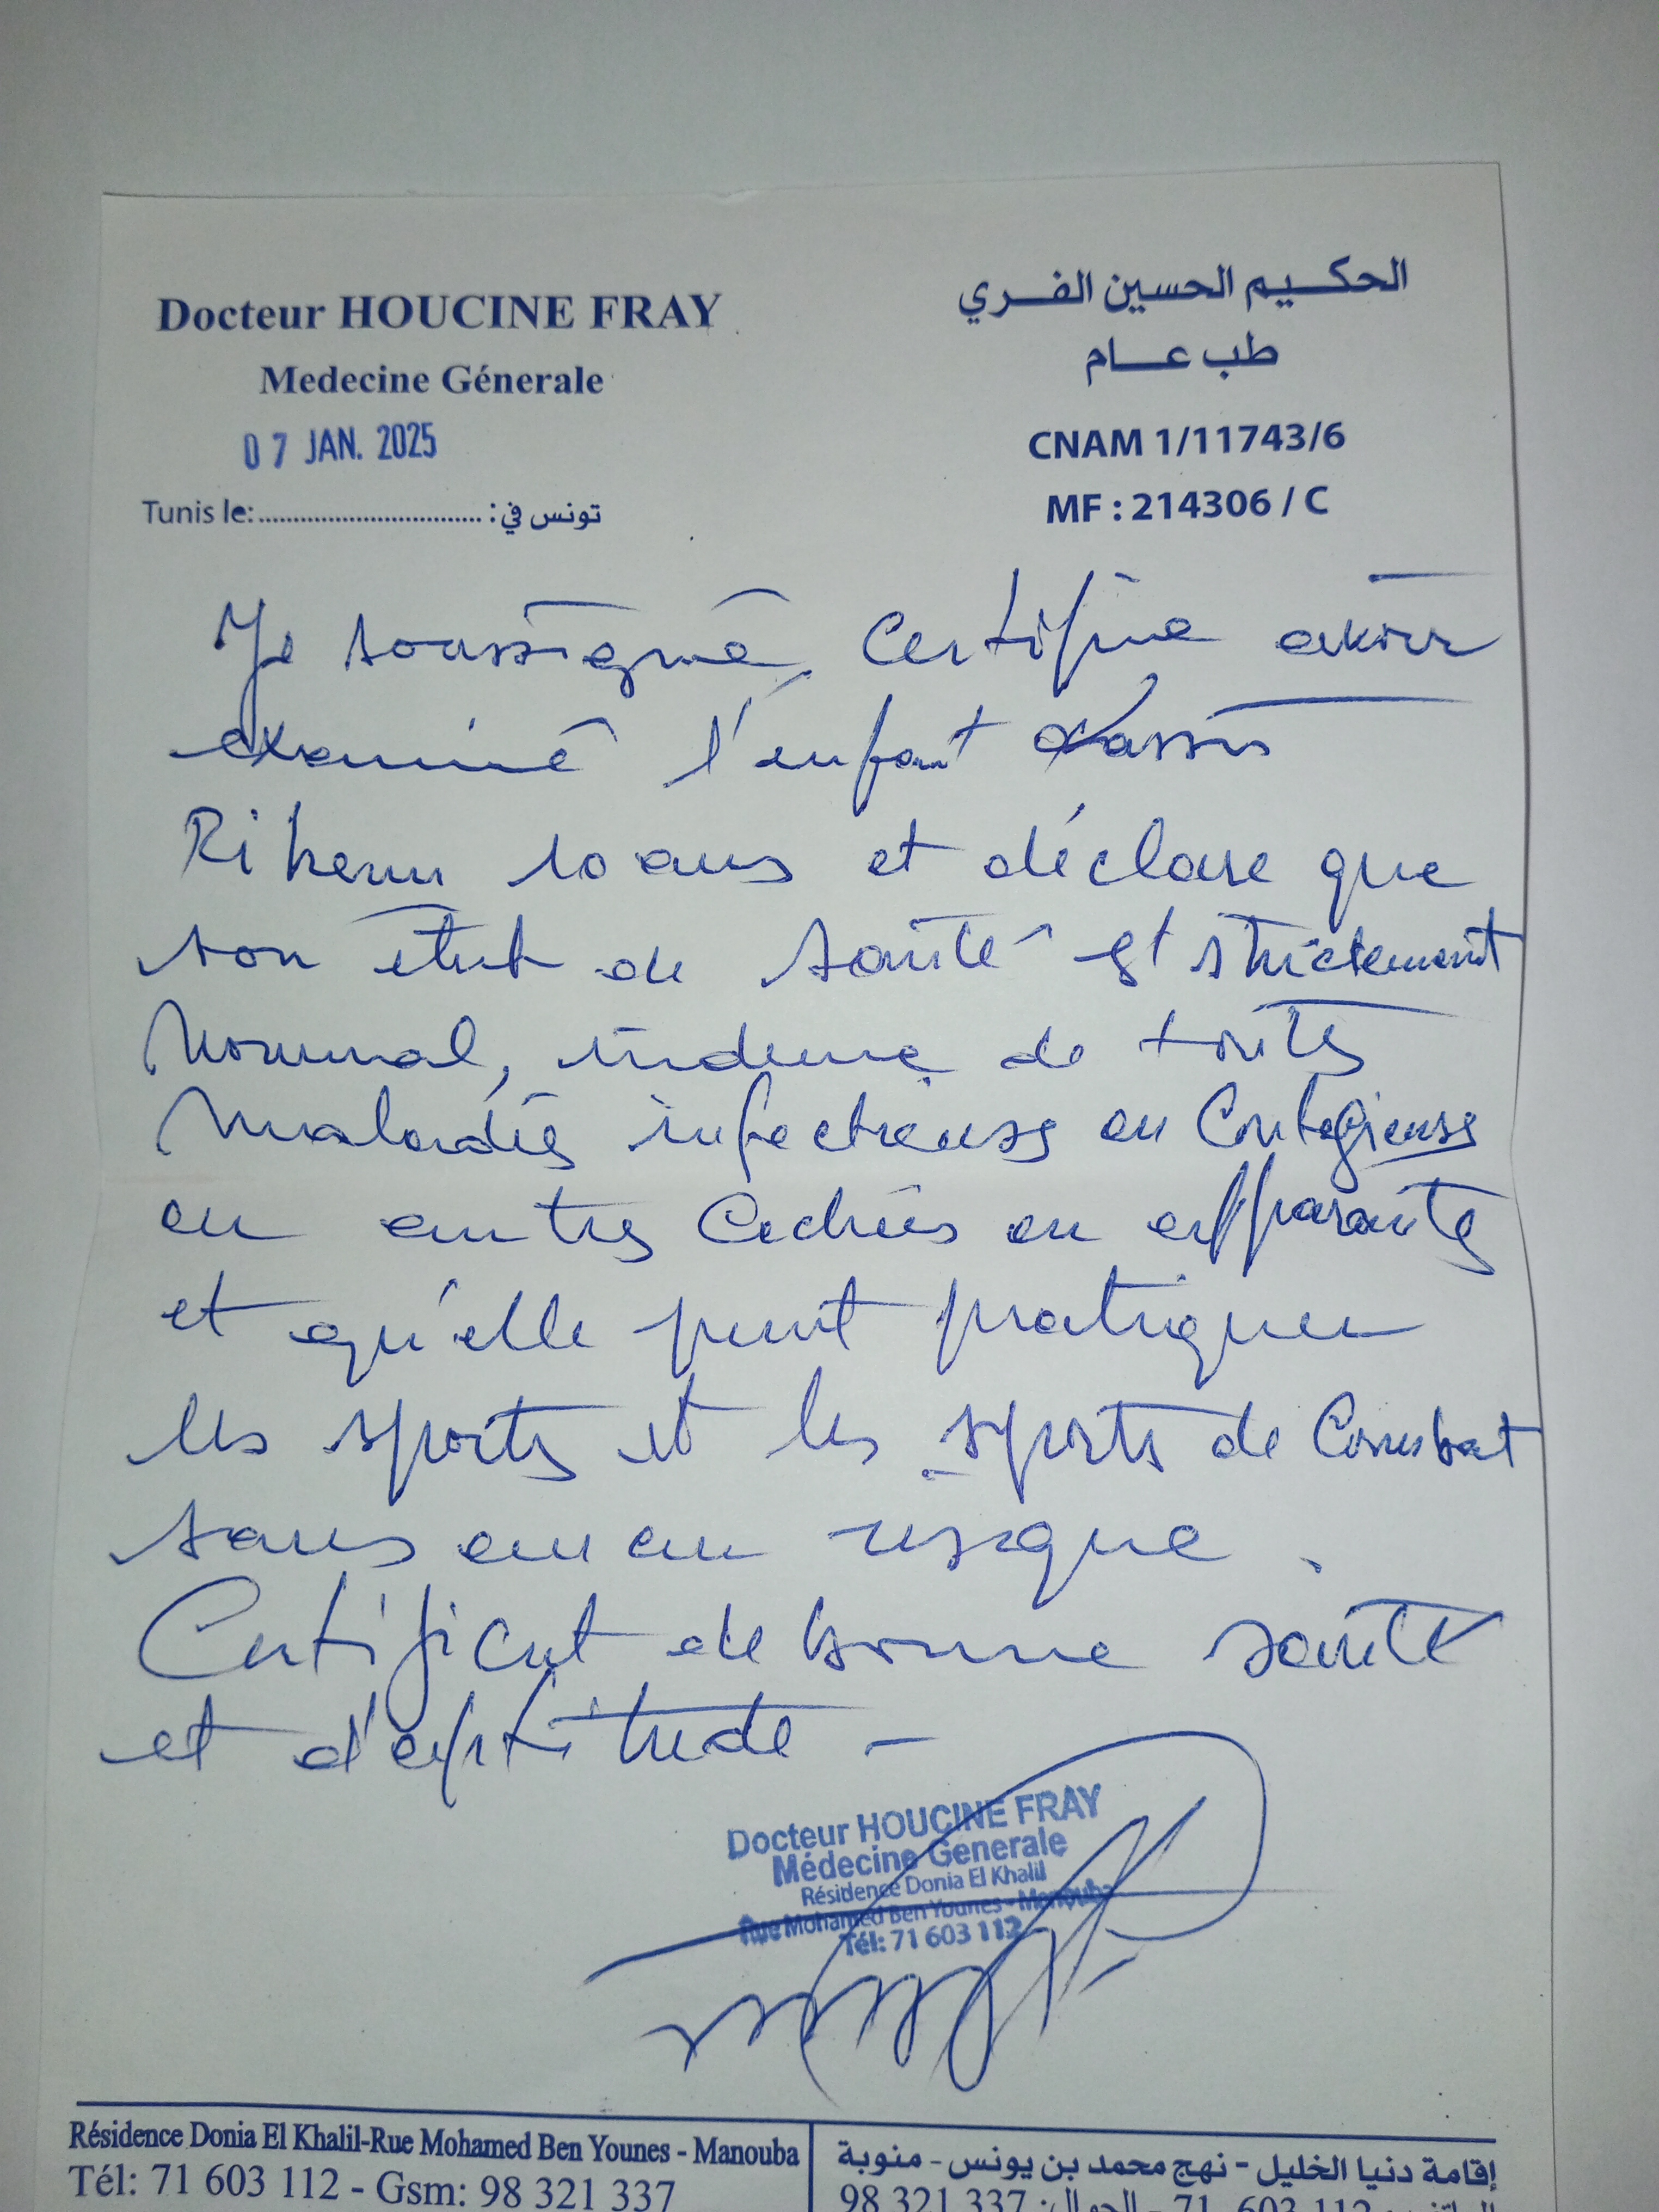 Docteur HOUCINE FRAY
Medecine Génerale
07 JAN. 2025
Tunis le: تونس في:
الحكيم الحسين الفري
طب عام
CNAM 1/11743/6
MF : 214306 / C
Je soussigné, certifie avoir
examiné l'enfant
Rihem 10 ans et déclare que
son état de santé est strictement
normal, indemne de toutes
maladies infectieuses ou contagieuses
ou autres cachées ou apparentes
et qu'elle peut pratiquer
les sports et les sports de combat
sans aucun risque.
Certificat de bonne santé
et d'aptitude -
Docteur HOUCINE FRAY
Médecine Generale
Résidence Donia El Khalil
Rue Mohamed Ben Younes - Manouba
Tél: 71 603 112
Résidence Donia El Khalil-Rue Mohamed Ben Younes - Manouba
Tél: 71 603 112 - Gsm: 98 321 337
إقامة دنيا الخليل - نهج محمد بن يونس - منوبة
الهاتف: 112 603 71 - الجوال: 337 321 98